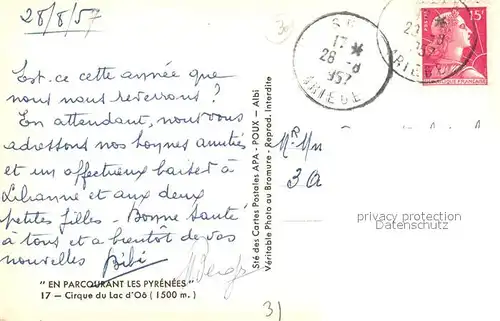 28/8/57
Est-ce cette année que
nous nous reverrons ?
En attendant, nous vous
adressons nos bonnes amitiés
et un affectueux baiser à
Lilianne et aux deux
petites filles - Bonne santé
à tous et à bientôt de vos
nouvelles Bibi
" EN PARCOURANT LES PYRÉNÉES "
17 — Cirque du Lac d'Oô ( 1500 m. )
Sté des Cartes Postales APA - POUX — Albi
Véritable Photo au Bromure - Reprod. Interdite
17 *
28 -8
957
ARIEGE
ARIEGE
15F
Mr Mm
privacy protection
Datenschutz
31